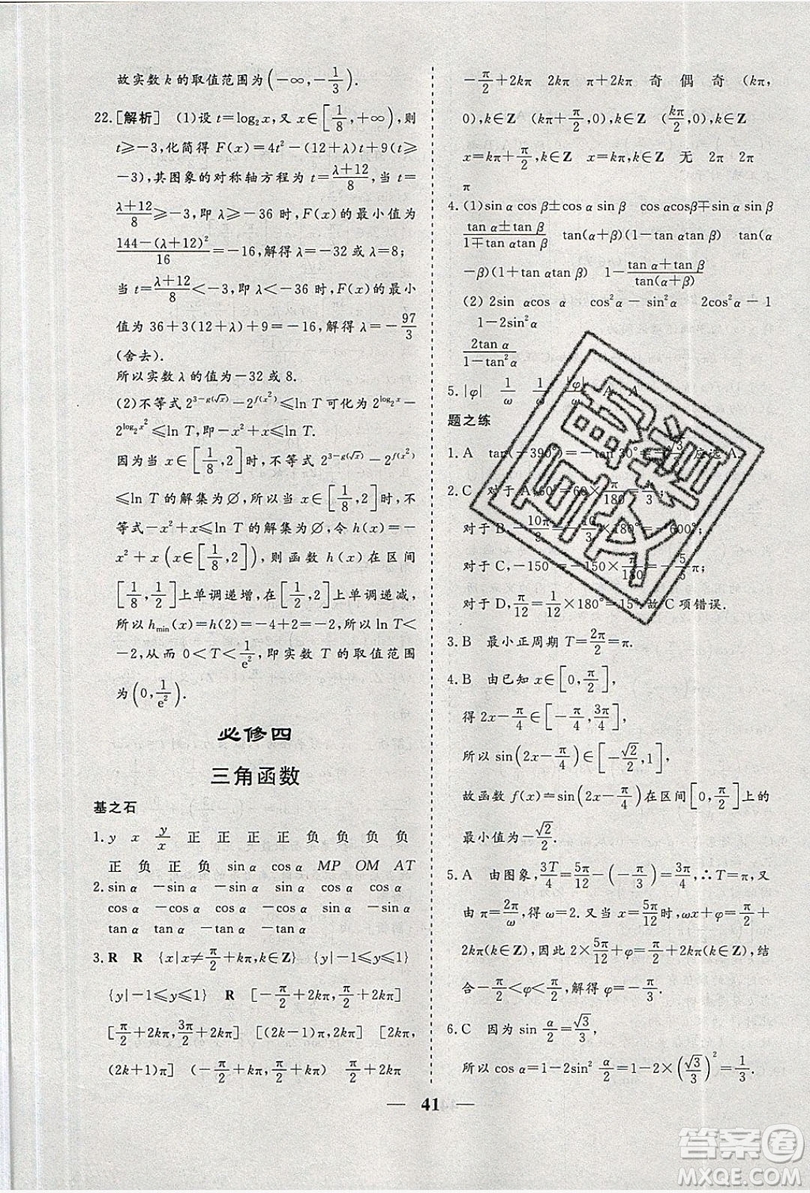 故实数 k 的取值范围为(-∞,-1/3).
22.[解析] (1)设 t=log₂x,又 x∈[1/8,+∞),则
t≥-3,化简得 F(x)=4t²-(12+λ)t+9(t≥
-3),其图象的对称轴方程为 t=(λ+12)/8,
当 (λ+12)/8≥-3,即 λ≥-36 时,F(x)的最小值为
(144-(λ+12)²)/16=-16,解得 λ=-32 或 λ=8;
当 t=(λ+12)/8<-3,即 λ<-36 时,F(x)的最小
值为 36+3(12+λ)+9=-16,解得 λ=-97/3
(舍去).
所以实数 λ 的值为-32 或 8.
(2)不等式 2^(3-g(√x))-2^(f(x²))≤ln T 可化为 2^(log₂x²)
因为当 x∈[1/8,2]时,不等式 2^(3-g(√x))-2^(f(x²))
≤ln T 的解集为∅,所以当 x∈[1/8,2]时,不等
式-x²+x≤ln T 的解集为∅,令 h(x)=-
x²+x(x∈[1/8,2]),则函数 h(x)在区间
[1/8,1/2]上单调递增,在[1/2,2]上单调递减,
所以 h_min(x)=h(2)=-2,所以 ln T<
-2,从而 0<T<1/e²,即实数 T 的取值范围
为(0,1/e²).
必修四
三角函数
基之石
1.y x y/x 正 正 正 正 负 负 负 负
正 负 正 负 sin α cos α MP OM AT
2.sin α -sin α -sin α sin α cos α cos α
cos α -cos α -cos α cos α sin α -sin α
tan α tan α -tan α -tan α
3.R R {x|x≠π/2+kπ,k∈Z} {y|-1≤y≤1}
{y|-1≤y≤1} R [-π/2+2kπ,π/2+2kπ]
[π/2+2kπ,3π/2+2kπ] [(2k-1)π,2kπ] [2kπ,
(2k+1)π] (-π/2+kπ,π/2+kπ) π/2+2kπ
-π/2+2kπ 2kπ π+2kπ 奇 偶 奇 (kπ,
0),k∈Z (kπ+π/2,0),k∈Z (kπ/2,0),k∈Z
x=kπ+π/2,k∈Z x=kπ,k∈Z 无 2π 2π
π
4.(1)sin αcos β±cos αsin β cos αcos β∓sin αsin β
(tan α±tan β)/(1∓tan αtan β) tan(α+β)(1-tan αtan β) tan(α
-β)(1+tan αtan β) 1-(tan α+tan β)/tan(α+β)
(2) 2sin αcos α cos²α-sin²α 2cos²α-1
1-2sin²α
2tan α/(1-tan²α)
5.|φ| 1/ω A A
题之练
1.A
2.C
对于 D,π/12=1/12×180°=15°,故 C 项错误.
3.B 最小正周期 T=2π/2=π.
4.B 由已知 x∈[0,π/2],
得 2x-π/4∈[-π/4,3π/4],
所以 sin(2x-π/4)∈[-√2/2,1],
故函数 f(x)=sin(2x-π/4)在区间[0,π/2]上的
最小值为-√2/2.
5.A 由图象,3T/4=5π/12-(-π/3),∴T=π,又
由 π=2π/ω得 ω=2,当 x=5π/12时,ωx+φ=π/2+
2kπ(k∈Z),即 2×5π/12+φ=π/2+2kπ(k∈Z),结
合-π/2<φ<π/2,解得 φ=-π/3.
6.C 因为 sin α/2=√3/3,
所以 cos α=1-2sin² α/2=1-2×(√3/3)²=1/3.
41
答案圈
MXQE.COM